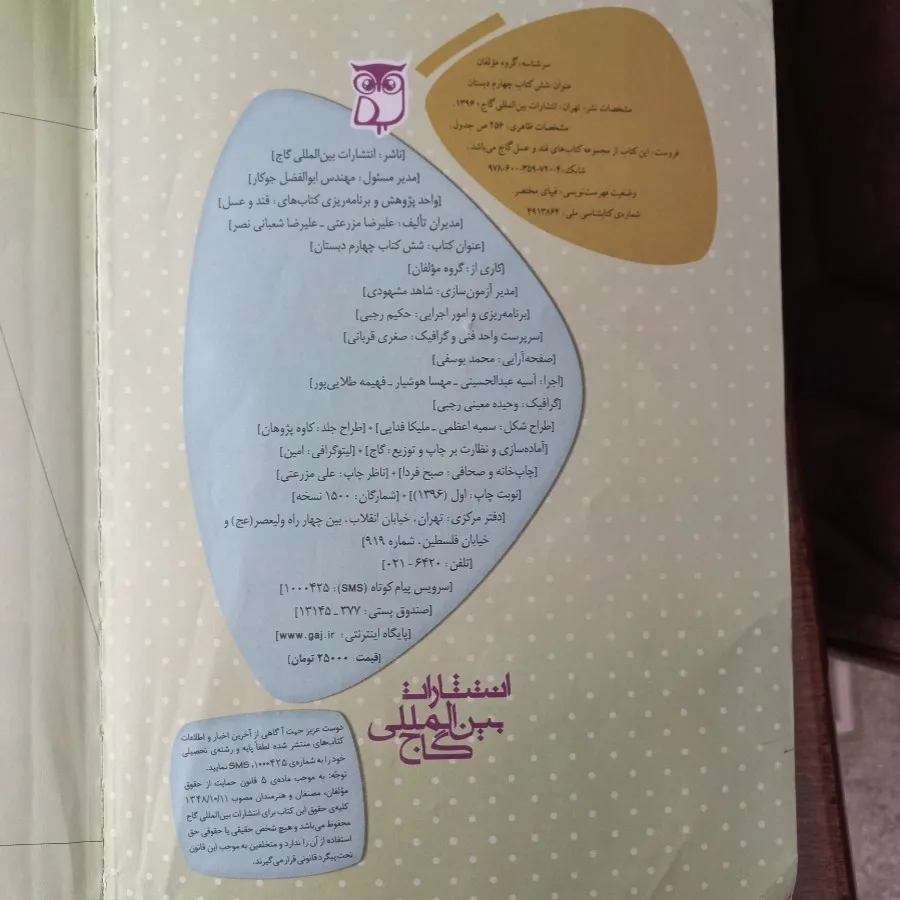 سرشناسه: گروه مؤلفان
عنوان: شش کتاب چهارم دبستان
مشخصات نشر: تهران: انتشارات بین‌المللی گاج؛ ۱۳۹۶.
مشخصات ظاهری: ۲۵۶ ص جدول.
فروست: این کتاب از مجموعه کتاب‌های قند و عسل گاج می‌باشد.
شابک: ۴-۰۷۲-۳۵۹-۶۰۰-۹۷۸
وضعیت فهرست‌نویسی: فیپای مختصر
شماره‌ی کتابشناسی ملی: ۴۹۱۳۸۶۴
[ناشر: انتشارات بین‌المللی گاج]
[مدیر مسئول: مهندس ابوالفضل جوکار]
[واحد پژوهش و برنامه‌ریزی کتاب‌های: قند و عسل]
[مدیران تألیف: علیرضا مزرعتی ـ علیرضا شعبانی نصر]
[عنوان کتاب: شش کتاب چهارم دبستان]
[کاری از: گروه مؤلفان]
[مدیر آزمون‌سازی: شاهد مشهودی]
[برنامه‌ریزی و امور اجرایی: حکیم رجبی]
[سرپرست واحد فنی و گرافیک: صغری قربانی]
[صفحه‌آرایی: محمد یوسفی]
[اجرا: آسیه عبدالحسینی ـ مهسا هوشیار ـ فهیمه طلایی‌پور]
[گرافیک: وحیده معینی رجبی]
[طراح شکل: سمیه اعظمی ـ ملیکا فدایی] • [طراح جلد: کاوه پژوهان]
[آماده‌سازی و نظارت بر چاپ و توزیع: گاج] • [لیتوگرافی: امین]
[چاپ‌خانه و صحافی: صبح فردا] • [ناظر چاپ: علی مزرعتی]
[نوبت چاپ: اول (۱۳۹۶)] • [شمارگان: ۱۵۰۰ نسخه]
[دفتر مرکزی: تهران، خیابان انقلاب، بین چهار راه ولیعصر(عج) و
خیابان فلسطین، شماره ۹۱۹]
[تلفن: ۶۴۲۰ - ۰۲۱]
[سرویس پیام کوتاه (SMS): ۱۰۰۰۴۲۵]
[صندوق پستی: ۳۷۷ ـ ۱۳۱۴۵]
[پایگاه اینترنتی: www.gaj.ir]
[قیمت: ۲۵۰۰۰ تومان]
انتشارات
بین‌المللی
گاج
دوست عزیز جهت آگاهی از آخرین اخبار و اطلاعات
کتاب‌های منتشر شده لطفاً پایه و رشته‌ی تحصیلی
خود را به شماره‌ی ۱۰۰۰۴۲۵، SMS نمایید.
توجّه: به موجب ماده‌ی ۵ قانون حمایت از حقوق
مؤلفان، مصنفان و هنرمندان مصوب ۱۳۴۸/۱۰/۱۱
کلیه‌ی حقوق این کتاب برای انتشارات بین‌المللی گاج
محفوظ می‌باشد و هیچ شخص حقیقی یا حقوقی حق
استفاده از آن را ندارد و متخلفین به موجب این قانون
تحت پیگرد قانونی قرار می‌گیرند.